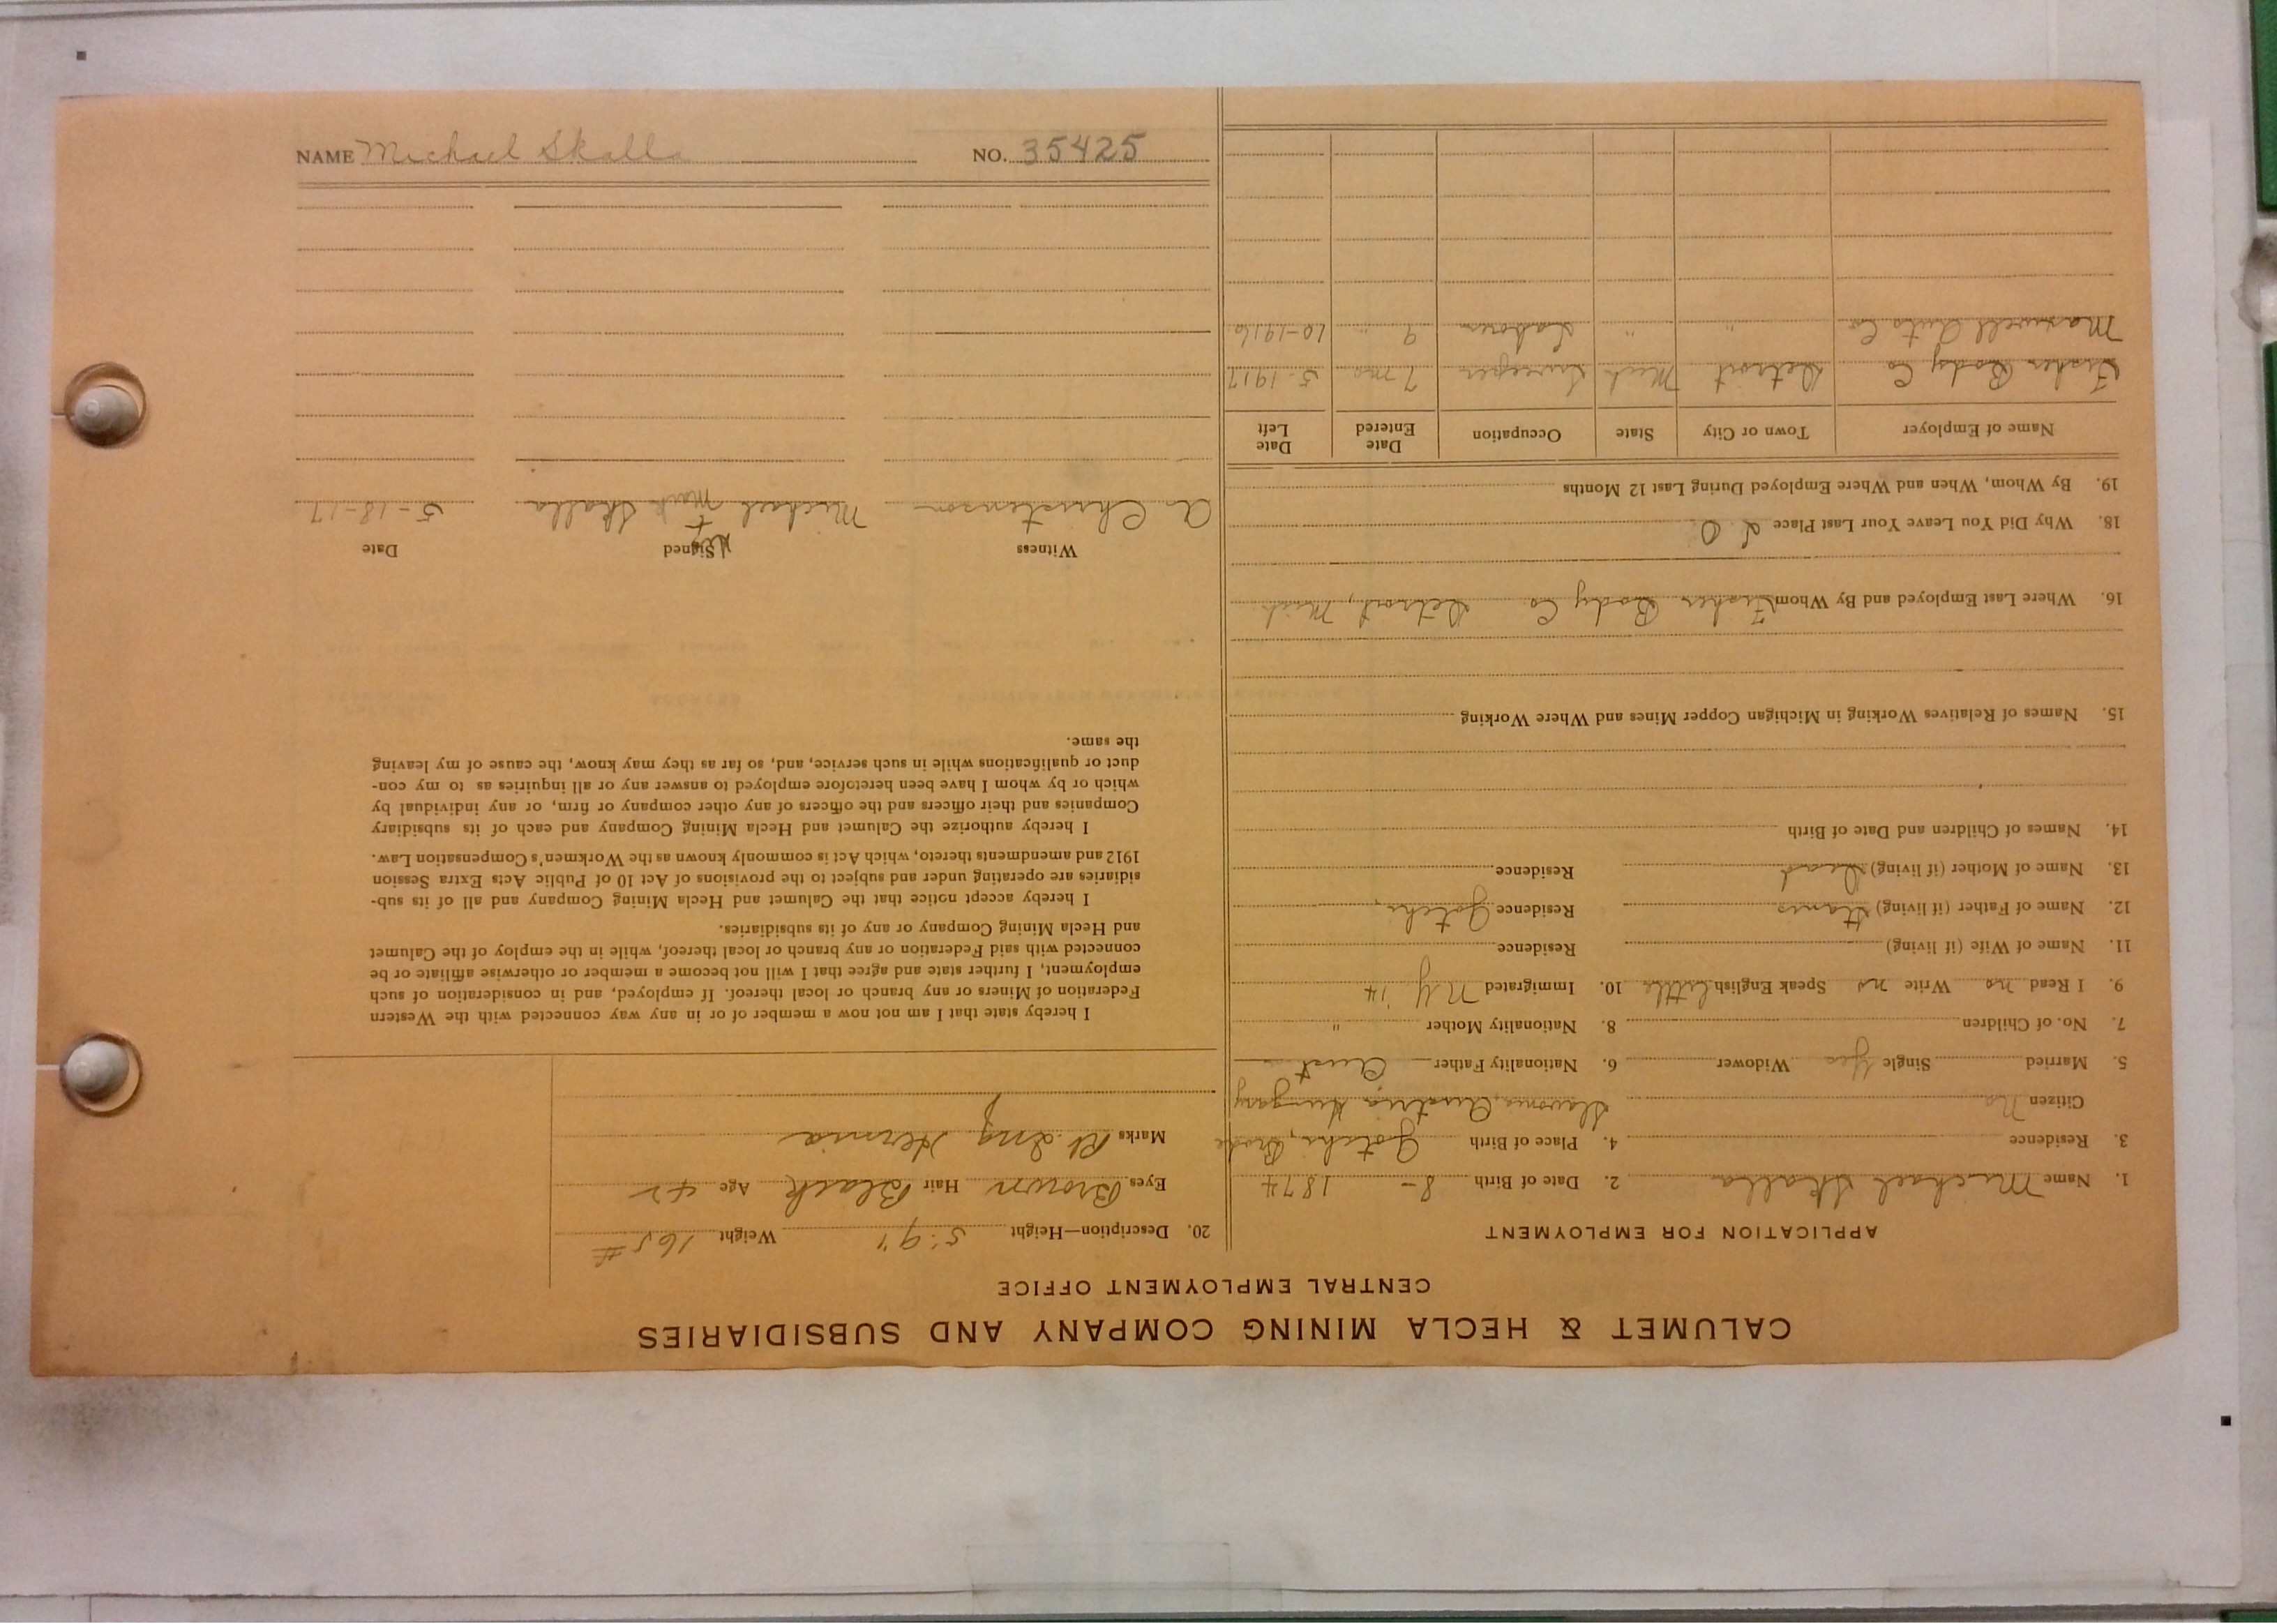 CALUMET & HECLA MINING COMPANY AND SUBSIDIARIES
CENTRAL EMPLOYMENT OFFICE
APPLICATION FOR EMPLOYMENT
1. Name Michael Skalla 2. Date of Birth 8- 1874
3. Residence 4. Place of Birth Gotchi, Brode
Citizen No Slavonia, Austria Hungary
5. Married Single Yes Widower 6. Nationality Father Aust
7. No. of Children 8. Nationality Mother "
9. I Read no Write no Speak English little 10. Immigrated NY '14
11. Name of Wife (if living) Residence
12. Name of Father (if living) Residence Gotchi,
13. Name of Mother (if living) Dead Residence
14. Names of Children and Date of Birth
15. Names of Relatives Working in Michigan Copper Mines and Where Working
16. Where Last Employed and By Whom Fisher Body Co Detroit, Mich
18. Why Did You Leave Your Last Place L O
19. By Whom, When and Where Employed During Last 12 Months
Name of Employer Town or City State Occupation Date Entered Date Left
Fisher Body Co Detroit Mich Sweeper 7 mo 5-1917
Maxwell Auto Co " " Laborer 9 " 10-1916
20. Description—Height 5' 9" Weight 165 #
Eyes Brown Hair Black Age 42
Marks Rt Ing Hernia
I hereby state that I am not now a member of or in any way connected with the Western
Federation of Miners or any branch or local thereof. If employed, and in consideration of such
employment, I further state and agree that I will not become a member or otherwise affiliate or be
connected with said Federation or any branch or local thereof, while in the employ of the Calumet
and Hecla Mining Company or any of its subsidiaries.
I hereby accept notice that the Calumet and Hecla Mining Company and all of its sub-
sidiaries are operating under and subject to the provisions of Act 10 of Public Acts Extra Session
1912 and amendments thereto, which Act is commonly known as the Workmen's Compensation Law.
I hereby authorize the Calumet and Hecla Mining Company and each of its subsidiary
Companies and their officers and the officers of any other company or firm, or any individual by
which or by whom I have been heretofore employed to answer any or all inquiries as to my con-
duct or qualifications while in such service, and, so far as they may know, the cause of my leaving
the same.
Witness Signed Date
his
A Christenson Michael + Skalla 5-18-17
mark
NAME Michael Skalla NO. 35425